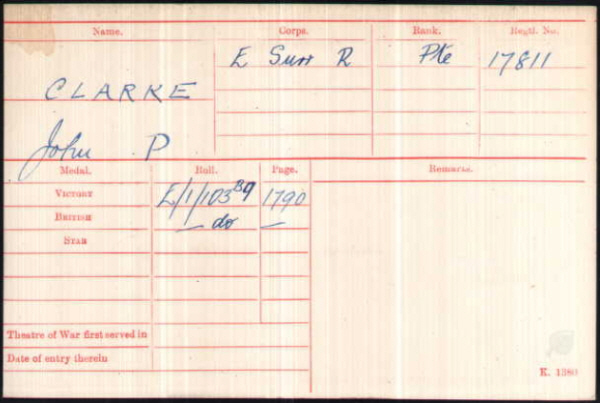 Name. Corps. Rank. Regtl. No.
E Surr R Pte 17811
CLARKE
John P
Medal. Roll. Page. Remarks.
VICTORY E/1/103 B9 1790
BRITISH — do —
STAR
Theatre of War first served in
Date of entry therein
K. 1380